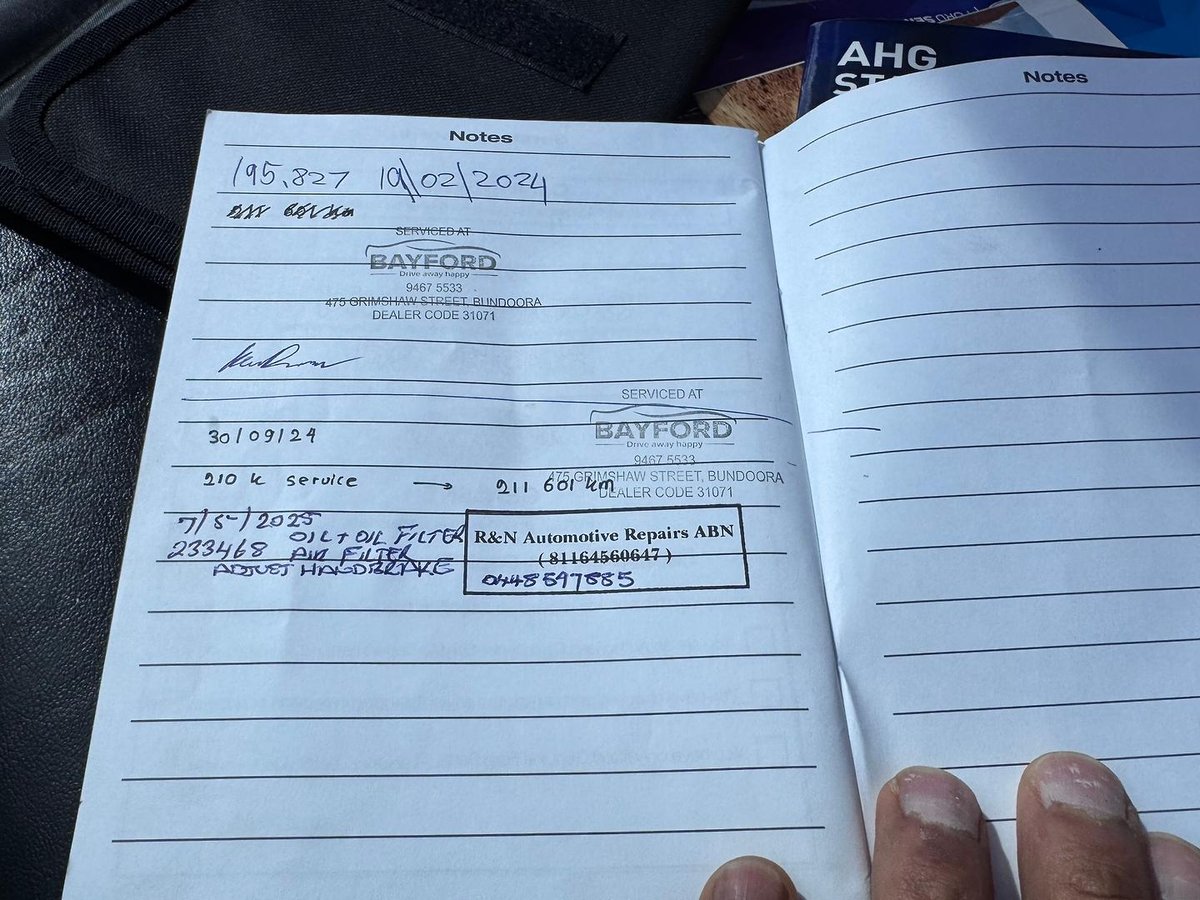 AHG
Notes
Notes
195,827 19/02/2024
SERVICED AT
BAYFORD
Drive away happy
9467 5533
475 GRIMSHAW STREET, BUNDOORA
DEALER CODE 31071
SERVICED AT
BAYFORD
Drive away happy
9467 5533
475 GRIMSHAW STREET, BUNDOORA
DEALER CODE 31071
30/09/24
210 k service → 211 601 km
7/5/2025 OIL + OIL FILTER
233468 AIR FILTER
ADJUST HANDBRAKE
R&N Automotive Repairs ABN
( 81164560647 )
0448597885